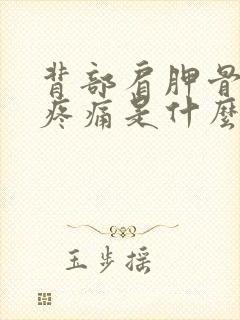 背部肩胛骨
疼痛是什麼
玉步摇